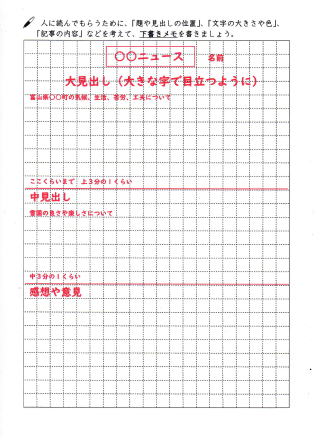 人に読んでもらうために、「題や見出しの位置」、「文字の大きさや色」、
「記事の内容」などを考えて、下書きメモを書きましょう。
〇〇ニュース 名前
大見出し（大きな字で目立つように）
富山県〇〇町の気候、生活、苦労、工夫について
ここくらいまで 上３分の１くらい
中見出し
雪国の良さや楽しさについて
中３分の１くらい
感想や意見